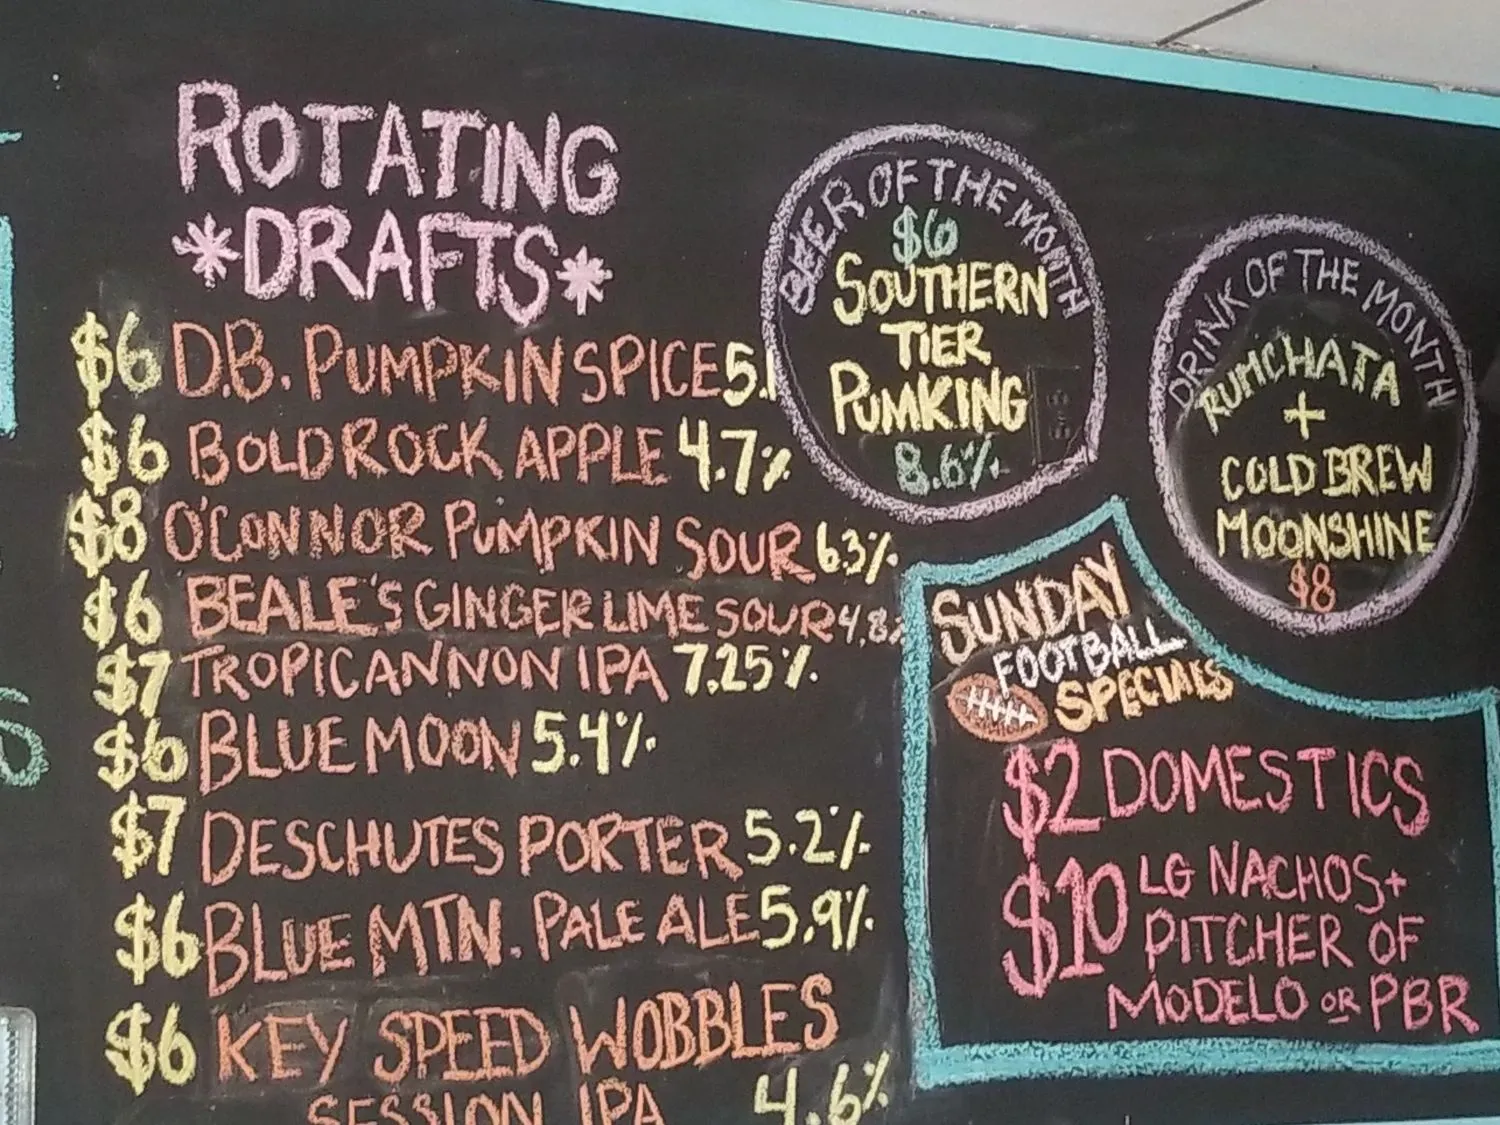 ROTATING
*DRAFTS*
$6 D.B. PUMPKIN SPICE 5.1
$6 BOLD ROCK APPLE 4.7%
$8 O'CONNOR PUMPKIN SOUR 6.3%
$6 BEALE'S GINGER LIME SOUR 4.8%
$7 TROPICANNON IPA 7.25%
$6 BLUE MOON 5.4%
$7 DESCHUTES PORTER 5.2%
$6 BLUE MTN. PALE ALE 5.9%
$6 KEY SPEED WOBBLES
SESSION IPA 4.6%
BEER OF THE MONTH
$6
SOUTHERN
TIER
PUMKING
8.6%
DRINK OF THE MONTH
RUMCHATA
+
COLD BREW
MOONSHINE
$8
SUNDAY
FOOTBALL
SPECIALS
$2 DOMESTICS
$10 LG NACHOS+
PITCHER OF
MODELO OR PBR